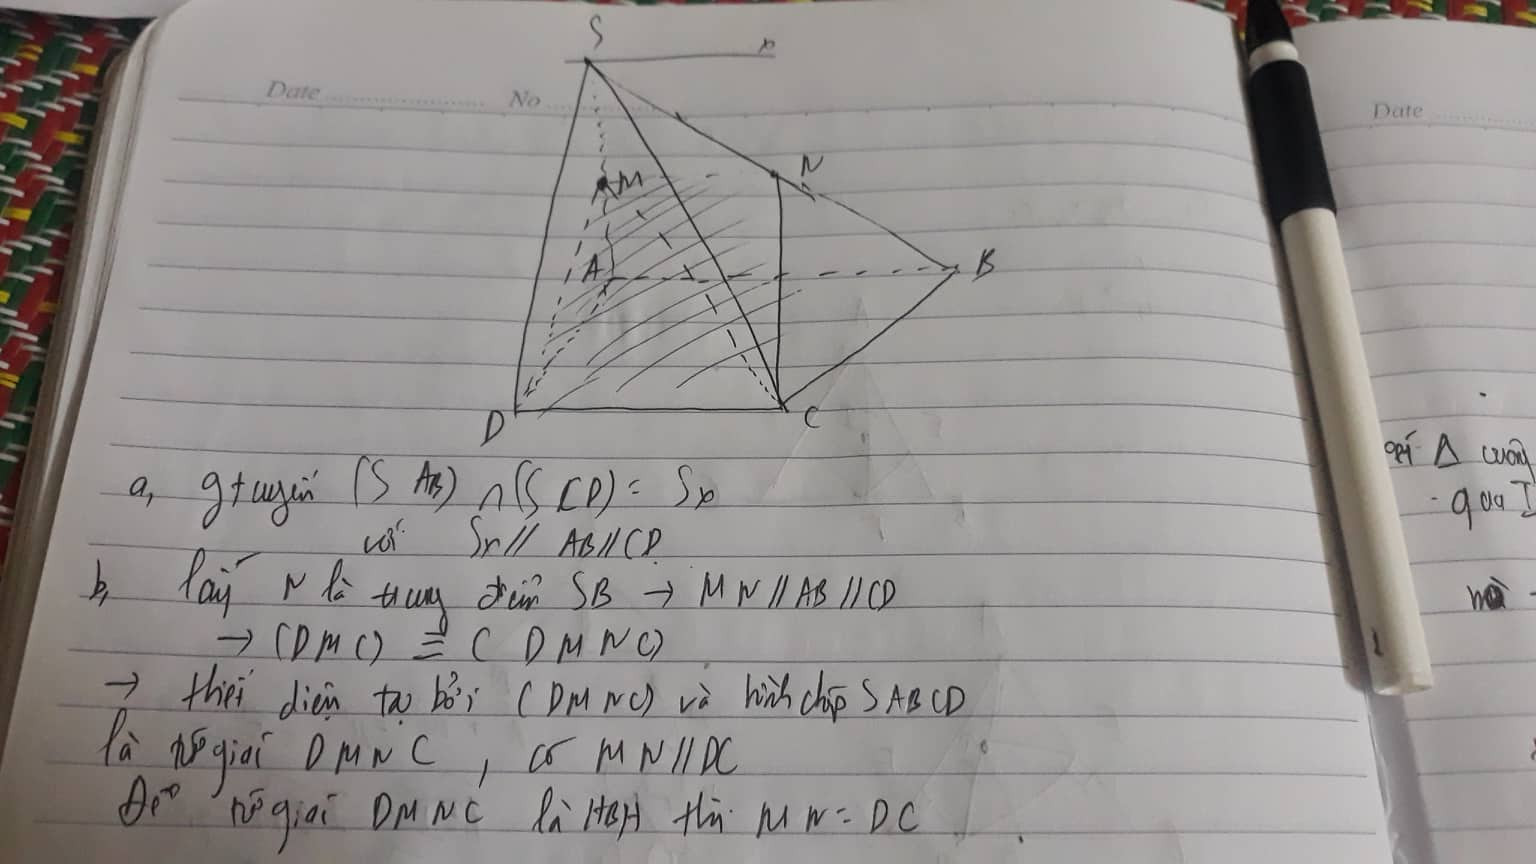 Date
No
Date
S
x
M
N
A
B
D
C
a, gtuyến (S AB) ∩ (S CD) = Sx
với Sx // AB // CD
b, lấy N là trung điểm SB → MN // AB // CD
→ (DMC) ≡ (DMNC)
→ thiết diện tạo bởi (DMNC) và hình chóp SABCD
là tứ giác DMNC, có MN // DC
Để tứ giác DMNC là HBH thì MN = DC
Δ
qua I
mà